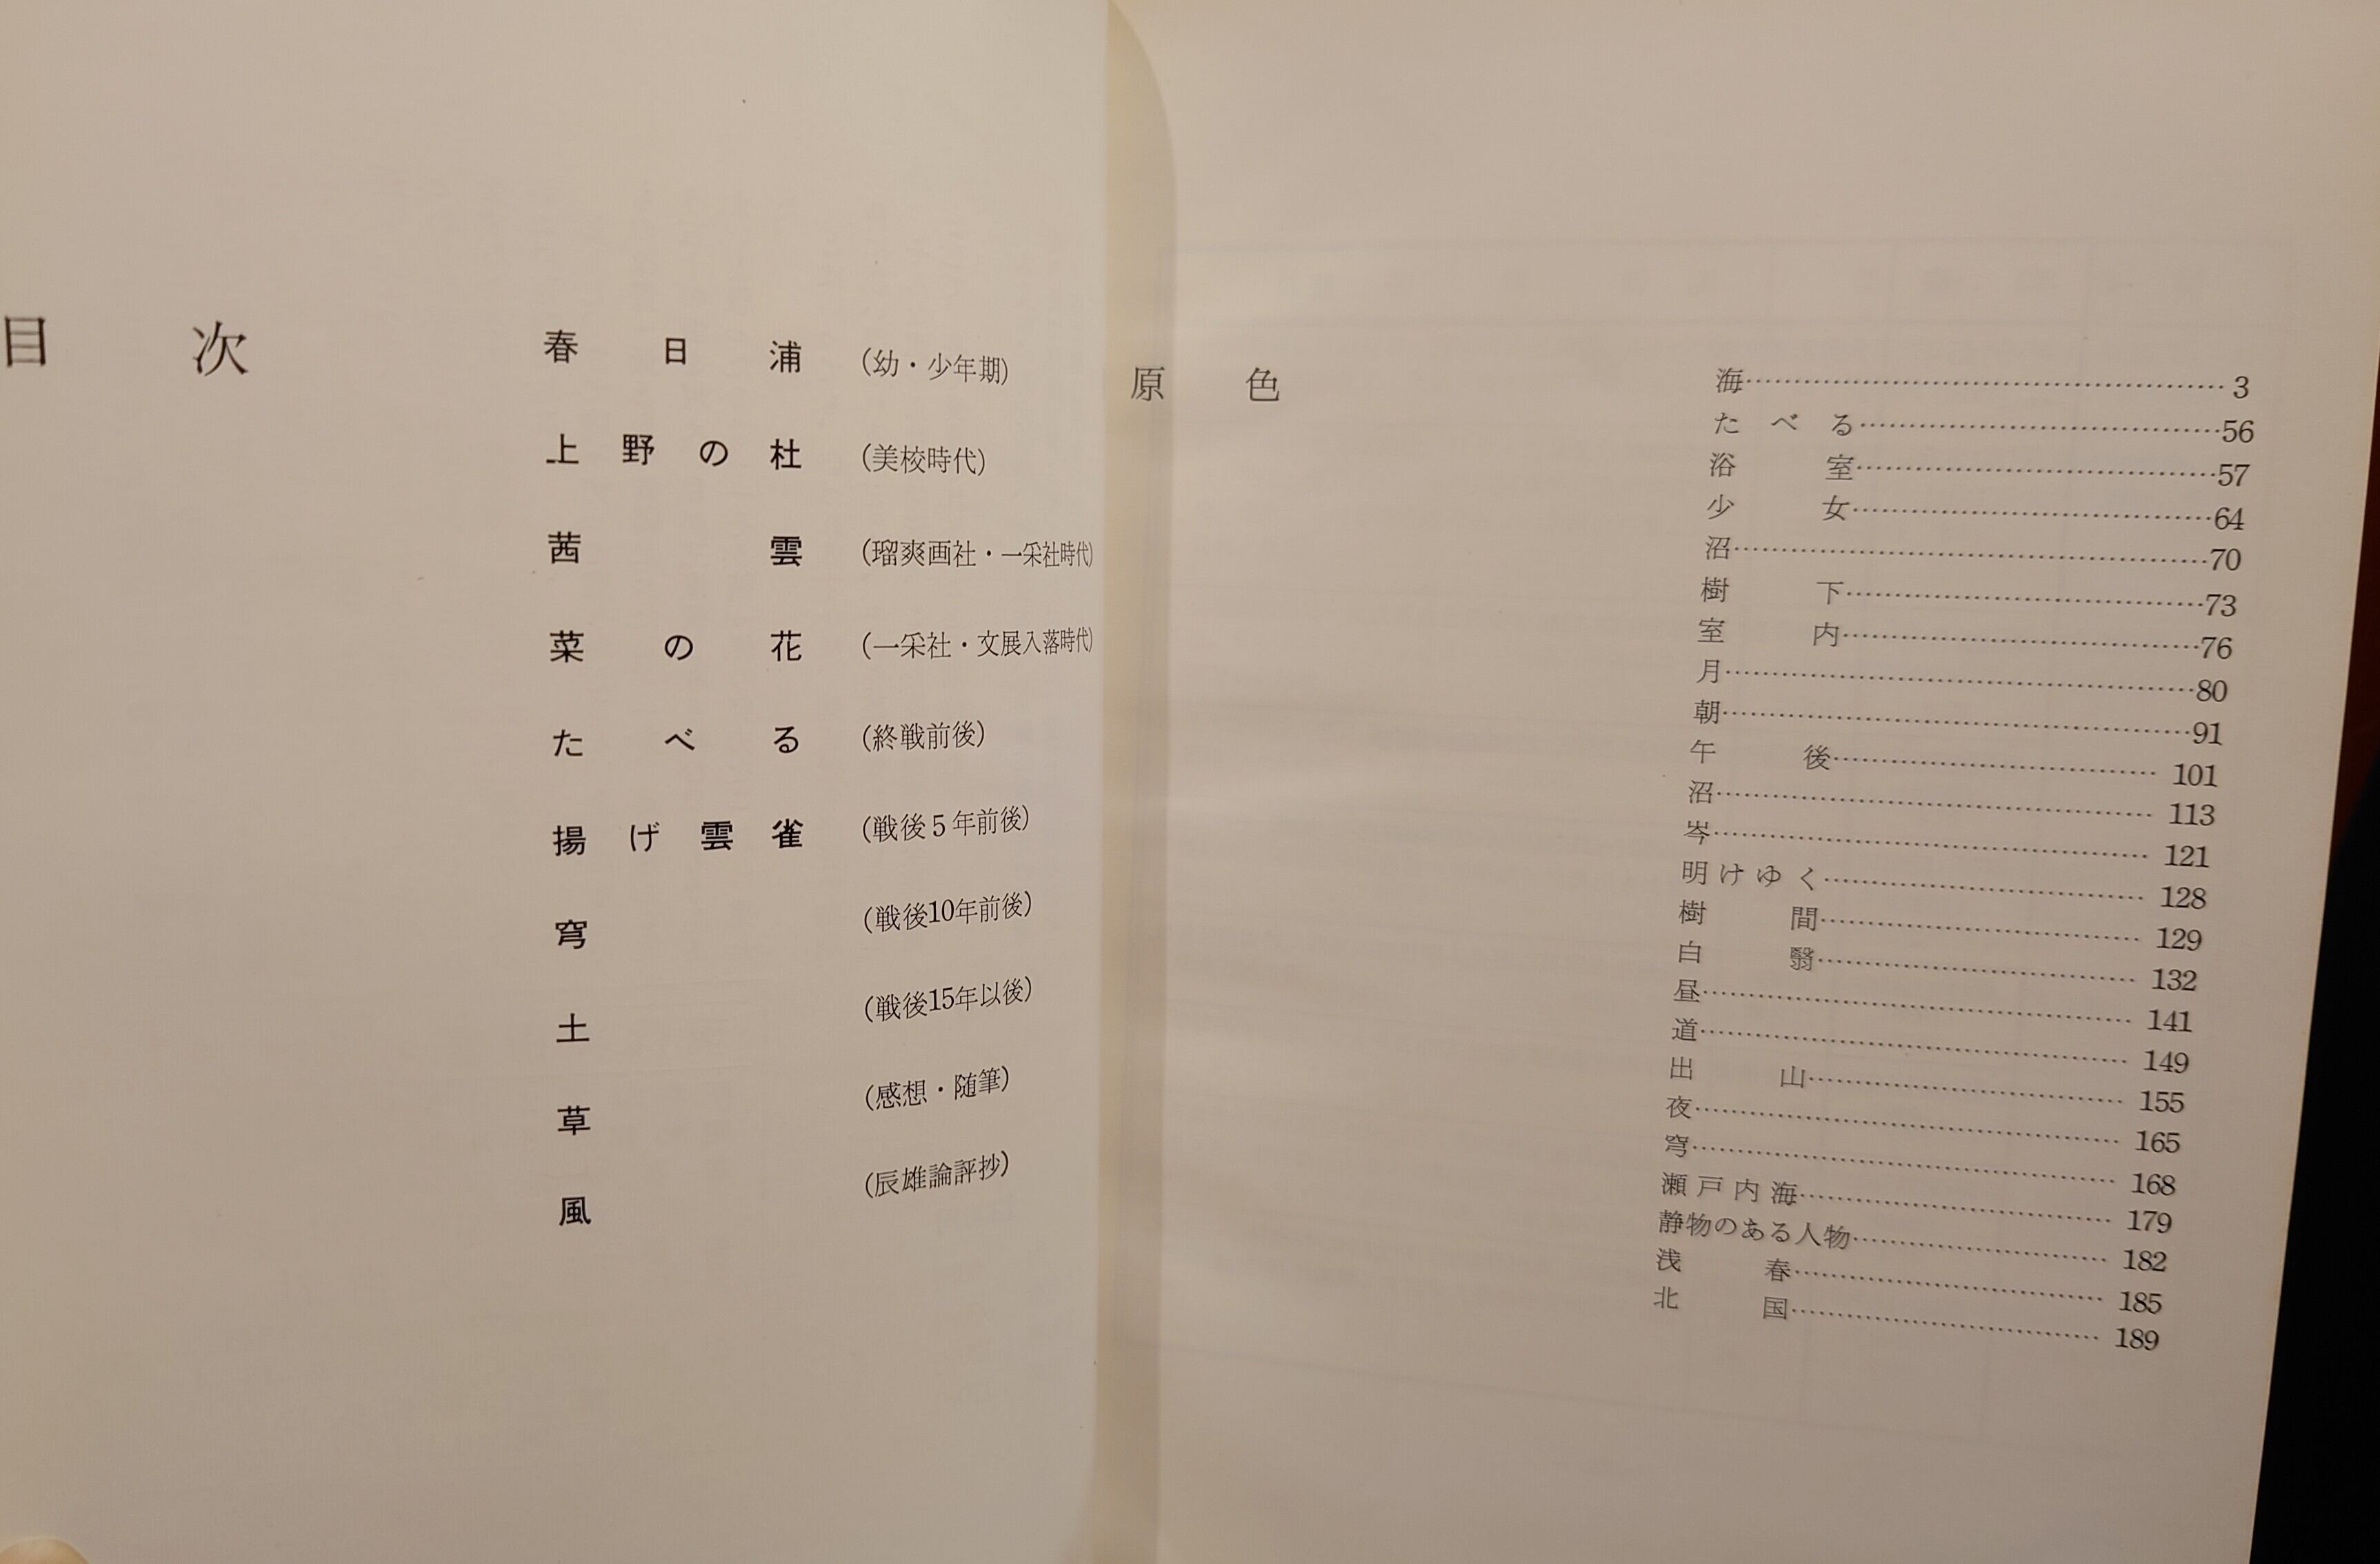 目次
春日浦 (幼・少年期)
上野の杜 (美校時代)
茜雲 (瑠爽画社・一采社時代)
菜の花 (一采社・文展入落時代)
たべる (終戦前後)
揚げ雲雀 (戦後5年前後)
穹 (戦後10年前後)
土 (戦後15年以後)
草 (感想・随筆)
風 (辰雄論評抄)
原色
海…3
たべる…56
浴室…57
少女…64
沼…70
樹下…73
室内…76
月…80
朝…91
午後…101
沼…113
岑…121
明けゆく…128
樹間…129
白翳…132
昼…141
道…149
出山…155
夜…165
穹…168
瀬戸内海…179
静物のある人物…182
浅春…185
北国…189